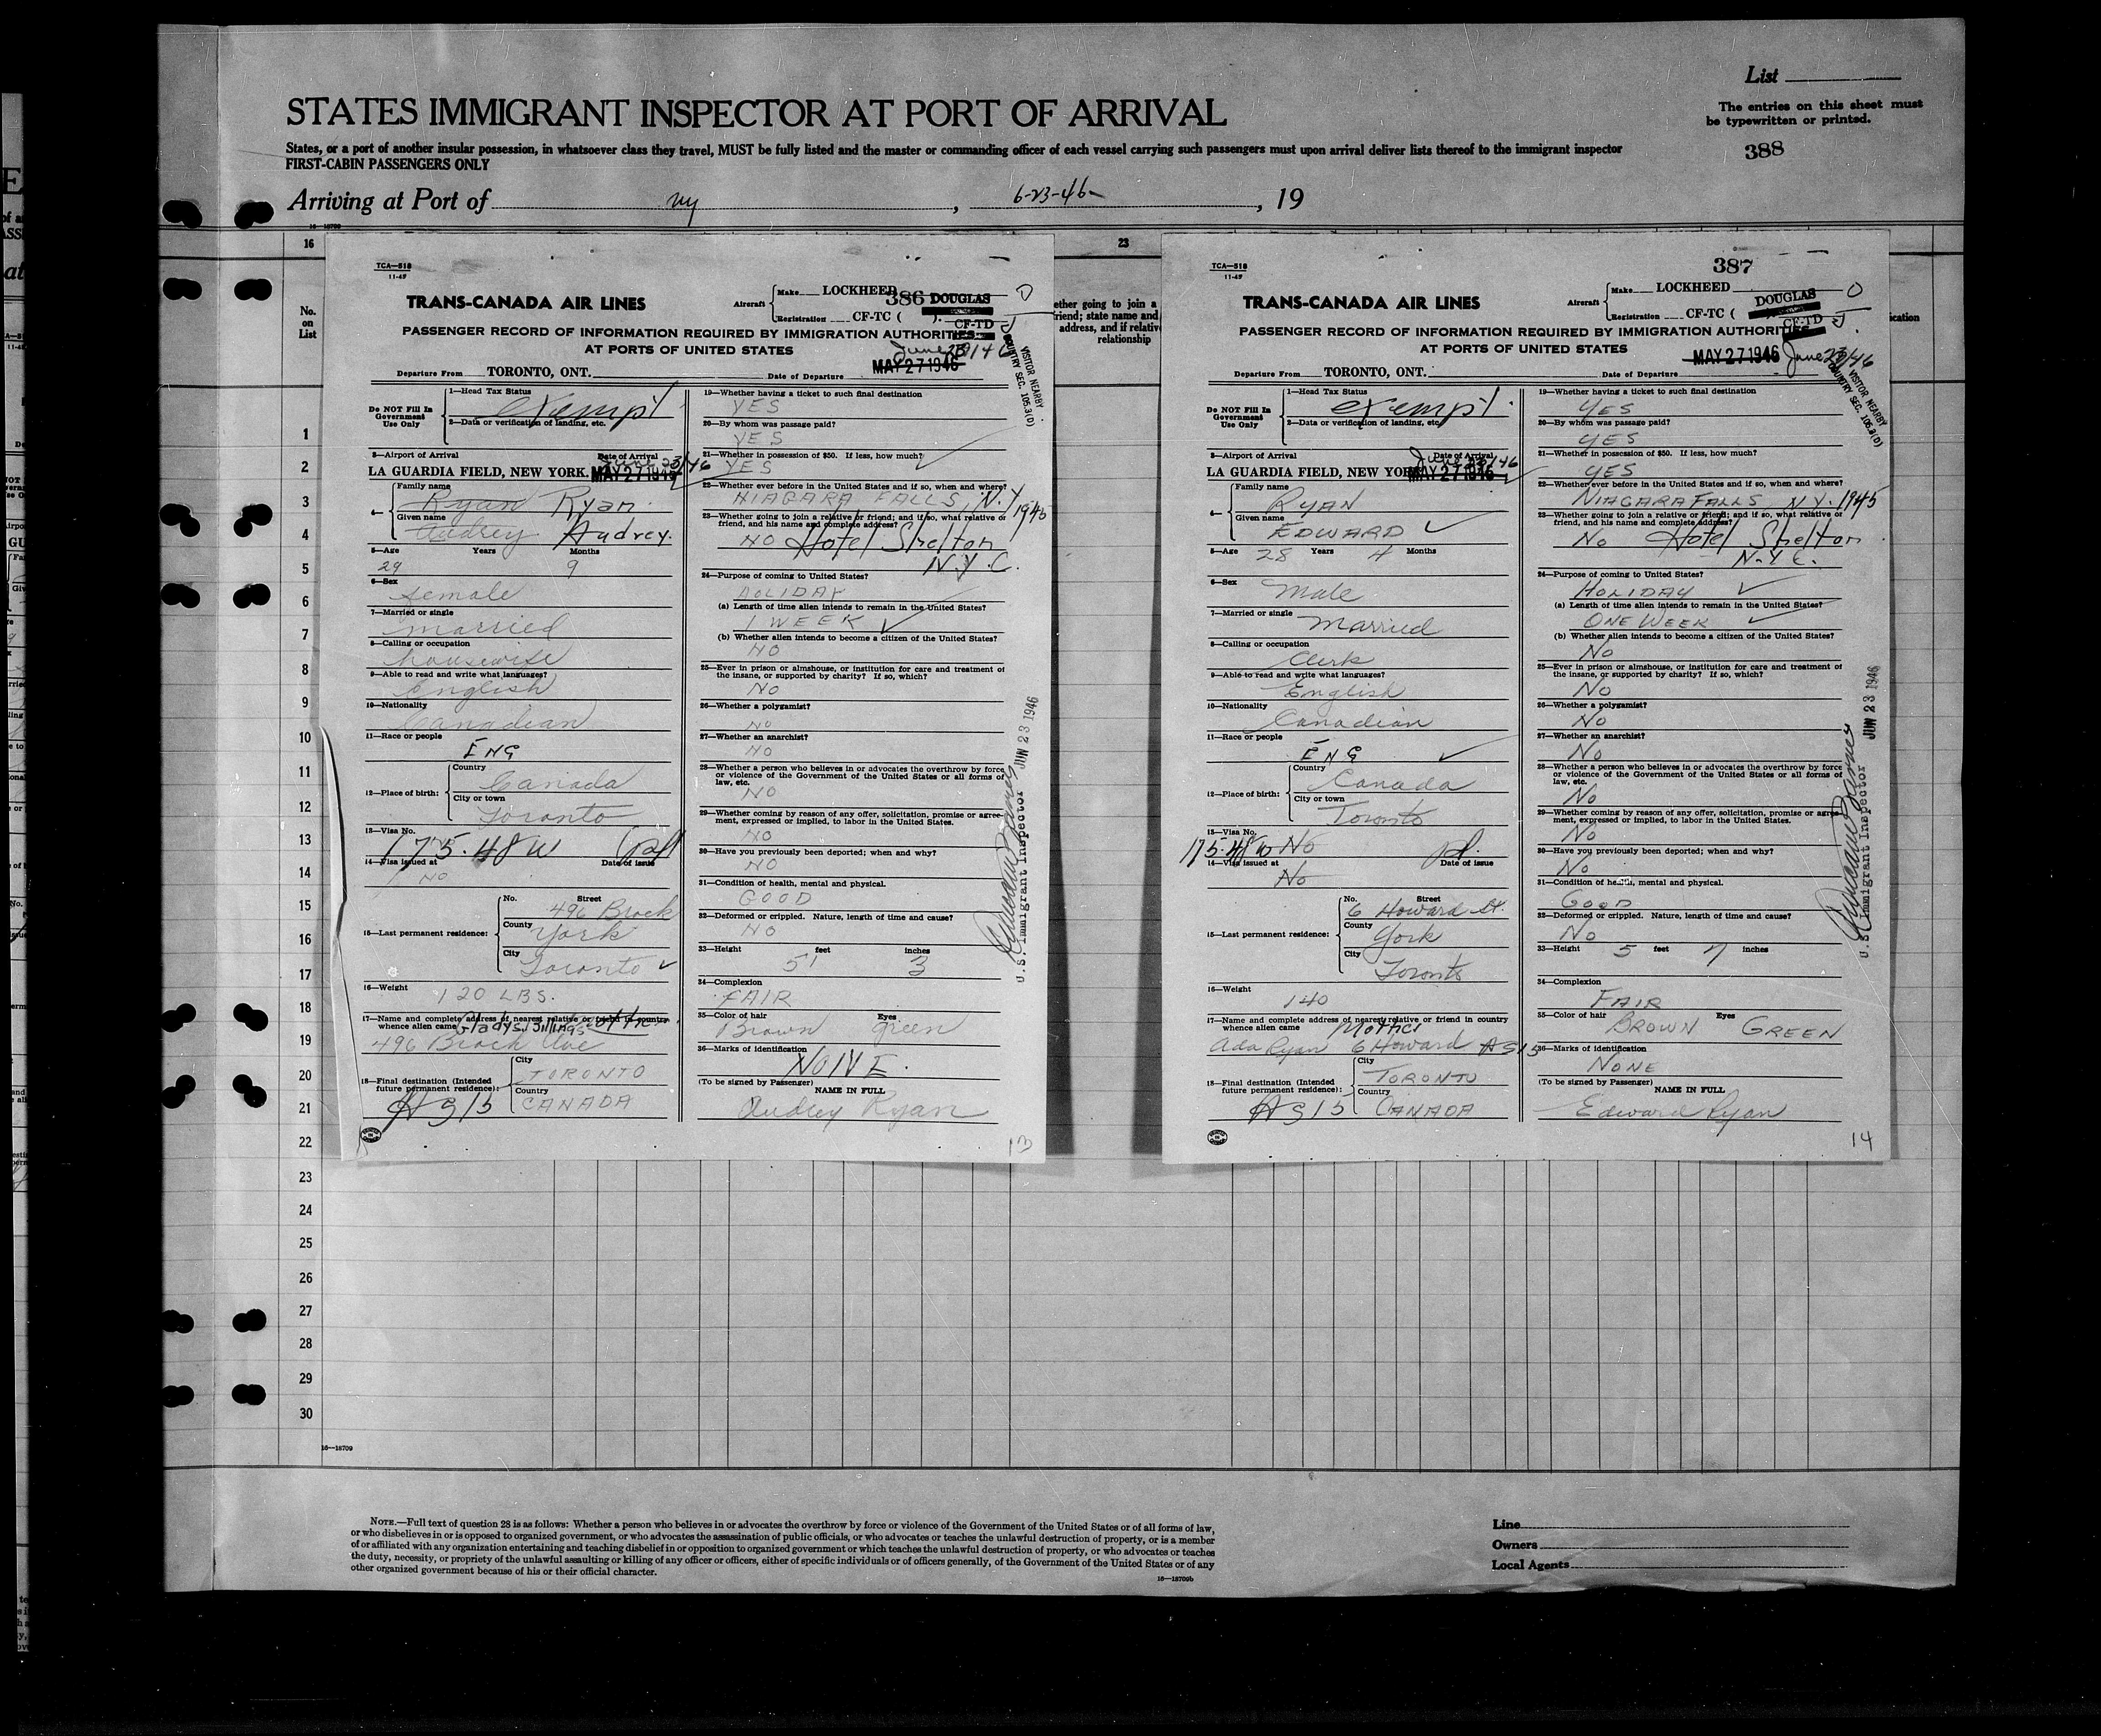 List
STATES IMMIGRANT INSPECTOR AT PORT OF ARRIVAL
The entries on this sheet must
be typewritten or printed.
States, or a port of another insular possession, in whatsoever class they travel, MUST be fully listed and the master or commanding officer of each vessel carrying such passengers must upon arrival deliver lists thereof to the immigrant inspector
FIRST-CABIN PASSENGERS ONLY
388
Arriving at Port of ny, 6-23-46, 19
16
23
No.
on
List
1
2
3
4
5
6
7
8
9
10
11
12
13
14
15
16
17
18
19
20
21
22
23
24
25
26
27
28
29
30
TCA—518
11-45
386
TRANS-CANADA AIR LINES
Aircraft
Make LOCKHEED DOUGLAS
Registration CF-TC ( ). CF-TD
PASSENGER RECORD OF INFORMATION REQUIRED BY IMMIGRATION AUTHORITIES
AT PORTS OF UNITED STATES
VISITOR NEARBY
COUNTRY SEC. 105.3(D)
June 23/46
Departure From TORONTO, ONT. Date of Departure MAY 27 1946
Do NOT Fill In
Government
Use Only
1—Head Tax Status
exempt
2—Data or verification of landing, etc.
3—Airport of Arrival Date of Arrival
June 23/46
LA GUARDIA FIELD, NEW YORK. MAY 27 1946
4—
Family name
Ryan Ryan
Given name
Audrey Audrey.
5—Age Years Months
29 9
6—Sex
female
7—Married or single
married
8—Calling or occupation
housewife
9—Able to read and write what languages?
English
10—Nationality
Canadian
11—Race or people
ENG
12—Place of birth:
Country
Canada
City or town
Toronto
13—Visa No.
175.48W
14—Visa issued at Date of issue
NO
15—Last permanent residence:
No. Street
496 Brock
County
York
City
Toronto
16—Weight
120 LBS.
17—Name and complete address of nearest relative or friend in country
whence alien came Gladys Billings
496 Brock Ave
18—Final destination (Intended
future permanent residence):
City
TORONTO
Country
CANADA
AS15
19—Whether having a ticket to such final destination
YES
20—By whom was passage paid?
YES
21—Whether in possession of $50. If less, how much?
YES
22—Whether ever before in the United States and if so, when and where?
NIAGARA FALLS, N.Y 1945
23—Whether going to join a relative or friend; and if so, what relative or
friend, and his name and complete address?
NO Hotel Shelton
N.Y.C.
24—Purpose of coming to United States?
HOLIDAY
(a) Length of time alien intends to remain in the United States?
1 WEEK
(b) Whether alien intends to become a citizen of the United States?
NO
25—Ever in prison or almshouse, or institution for care and treatment of
the insane, or supported by charity? If so, which?
NO
26—Whether a polygamist?
NO
27—Whether an anarchist?
NO
28—Whether a person who believes in or advocates the overthrow by force
or violence of the Government of the United States or all forms of
law, etc.
NO
29—Whether coming by reason of any offer, solicitation, promise or agree-
ment, expressed or implied, to labor in the United States.
NO
30—Have you previously been deported; when and why?
NO
31—Condition of health, mental and physical.
GOOD
32—Deformed or crippled. Nature, length of time and cause?
NO
33—Height feet inches
5' 3
34—Complexion
FAIR
35—Color of hair Eyes
Brown green
36—Marks of identification
NONE.
(To be signed by Passenger) NAME IN FULL
Audrey Ryan
JUN 23 1946
U.S. Immigrant Inspector
13
ether going to join a
friend; state name and
address, and if relative
relationship
ication
TCA—518
11-45
387
TRANS-CANADA AIR LINES
Aircraft
Make LOCKHEED DOUGLAS
Registration CF-TC ( CF-TD
PASSENGER RECORD OF INFORMATION REQUIRED BY IMMIGRATION AUTHORITIES
AT PORTS OF UNITED STATES
VISITOR NEARBY
COUNTRY SEC. 105.3(D)
Departure From TORONTO, ONT. Date of Departure MAY 27 1946 June 23/46
Do NOT Fill In
Government
Use Only
1—Head Tax Status
exempt
2—Data or verification of landing, etc.
3—Airport of Arrival Date of Arrival
June 23/46
LA GUARDIA FIELD, NEW YORK MAY 27 1946
4—
Family name
RYAN
Given name
EDWARD
5—Age Years Months
28 4
6—Sex
Male
7—Married or single
Married
8—Calling or occupation
Clerk
9—Able to read and write what languages?
English
10—Nationality
Canadian
11—Race or people
ENG
12—Place of birth:
Country
Canada
City or town
Toronto
13—Visa No.
175-48W No
14—Visa issued at Date of issue
No
15—Last permanent residence:
No. Street
6 Howard St.
County
York
City
Toronto
16—Weight
140
17—Name and complete address of nearest relative or friend in country
whence alien came Mother
Ada Ryan 6 Howard AS15
18—Final destination (Intended
future permanent residence):
City
TORONTO
Country
CANADA
AS15
19—Whether having a ticket to such final destination
YES
20—By whom was passage paid?
YES
21—Whether in possession of $50. If less, how much?
YES
22—Whether ever before in the United States and if so, when and where?
NIAGARA FALLS N.Y. 1945
23—Whether going to join a relative or friend; and if so, what relative or
friend, and his name and complete address?
No Hotel Shelton
N.Y.C.
24—Purpose of coming to United States?
HOLIDAY
(a) Length of time alien intends to remain in the United States?
ONE WEEK
(b) Whether alien intends to become a citizen of the United States?
No
25—Ever in prison or almshouse, or institution for care and treatment of
the insane, or supported by charity? If so, which?
No
26—Whether a polygamist?
No
27—Whether an anarchist?
No
28—Whether a person who believes in or advocates the overthrow by force
or violence of the Government of the United States or all forms of
law, etc.
No
29—Whether coming by reason of any offer, solicitation, promise or agree-
ment, expressed or implied, to labor in the United States.
No
30—Have you previously been deported; when and why?
No
31—Condition of health, mental and physical.
GOOD
32—Deformed or crippled. Nature, length of time and cause?
No
33—Height 5 feet 7 inches
34—Complexion
FAIR
35—Color of hair Eyes
BROWN GREEN
36—Marks of identification
NONE
(To be signed by Passenger) NAME IN FULL
Edward Ryan
JUN 23 1946
U.S. Immigrant Inspector
14
16—18709
NOTE.—Full text of question 28 is as follows: Whether a person who believes in or advocates the overthrow by force or violence of the Government of the United States or of all forms of law,
or who disbelieves in or is opposed to organized government, or who advocates the assassination of public officials, or who advocates or teaches the unlawful destruction of property, or is a member
of or affiliated with any organization entertaining and teaching disbelief in or opposition to organized government or which teaches the unlawful destruction of property, or who advocates or teaches
the duty, necessity, or propriety of the unlawful assaulting or killing of any officer or officers, either of specific individuals or of officers generally, of the Government of the United States or of any
other organized government because of his or their official character.
16—18709b
Line
Owners
Local Agents